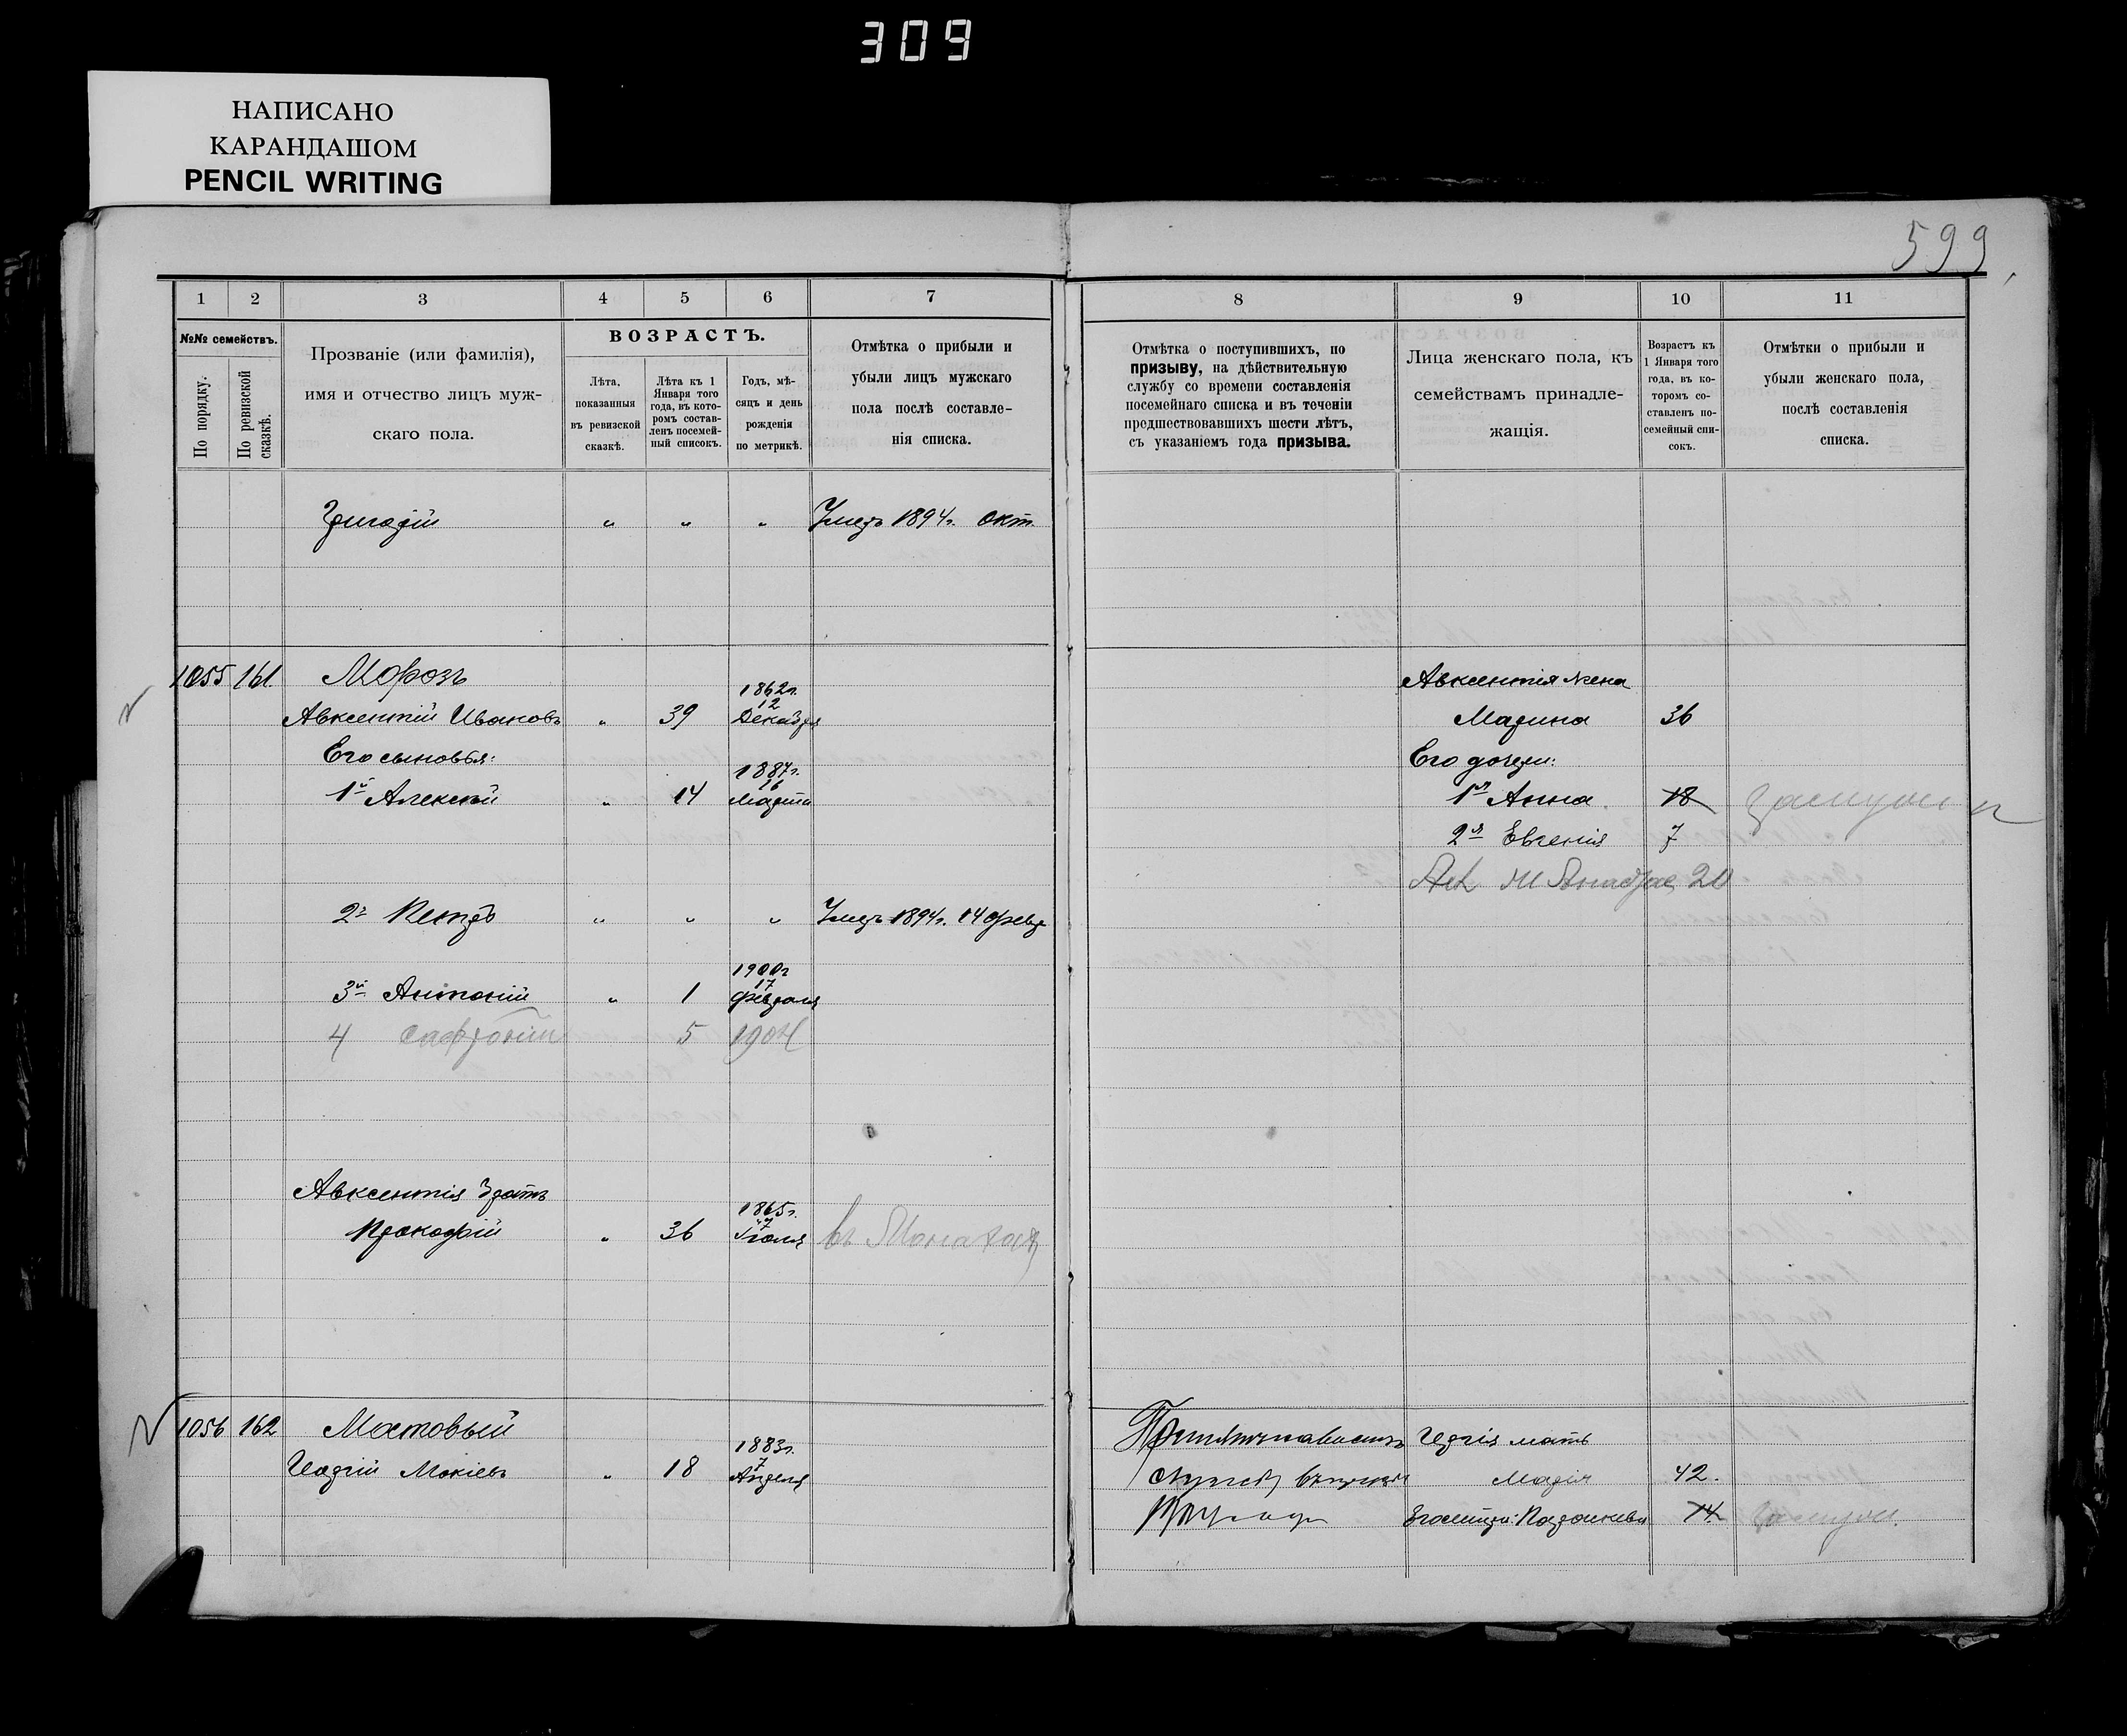 309
НАПИСАНО
КАРАНДАШОМ
PENCIL WRITING
599
1 2 3 4 5 6 7
№№ семействъ.
По порядку.
По ревизской сказкѣ.
Прозваніе (или фамилія),
имя и отчество лицъ муж-
скаго пола.
ВОЗРАСТЪ.
Лѣта,
показанныя
въ ревизской
сказкѣ.
Лѣта къ 1
Января того
года, въ кото-
ромъ состав-
ленъ посемей-
ный списокъ.
Годъ, мѣ-
сяцъ и день
рожденія
по метрикѣ.
Отмѣтка о прибыли и
убыли лицъ мужскаго
пола послѣ составле-
нія списка.
8 9 10 11
Отмѣтка о поступившихъ, по
призыву, на дѣйствительную
службу со времени составленія
посемейнаго списка и въ теченіи
предшествовавшихъ шести лѣтъ,
съ указаніемъ года призыва.
Лица женскаго пола, къ
семействамъ принадле-
жащія.
Возрастъ къ
1 Января того
года, въ ко-
торомъ со-
ставленъ по-
семейный спи-
сокъ.
Отмѣтки о прибыли и
убыли женскаго пола,
послѣ составленія
списка.
Григорій " " " Умеръ 1894г. Окт.
1055 161 Морозъ
Авксентій Ивановъ " 39 1862г. 12 Декабря
Его сыновья:
1й Алексѣй " 14 1887г. 16 Марта
2й Петръ " " " Умеръ 1894г. 14 февр
3й Антоній " 1 1900г 17 февраля
4 Сафроній 5 1904
Авксентія братъ
Прокофій " 36 1865г. 7 Іюля въ
Авксентія жена
Марина 36
Его дочери:
1я Анна 18 замуж
2я Евгенія 7
20
1056 162 Мостовый
Георгій Мокіевъ " 18 1883г. 7 Апреля
Георгія мать
Марія 42.
14 замуж.